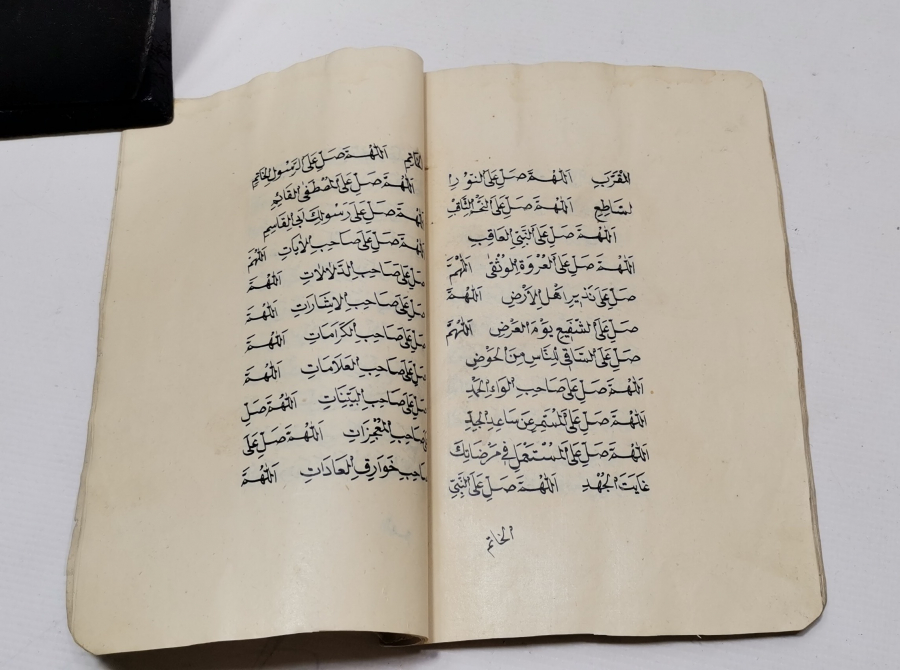 المقرب اللهم صل على النور
الساطع اللهم صل على النجم الثاقب
اللهم صل على النبي العاقب
اللهم صل على العروة الوثقى اللهم
صل على نذير اهل الارض اللهم
صل على الشفيع يوم العرض اللهم
صل على الساقي للناس من الحوض
اللهم صل على صاحب لواء الحمد
اللهم صل على المشمر عن ساعد الجد
اللهم صل على المستعمل في مرضاتك
غايت الجهد اللهم صل على النبي
الخاتم
الخاتم اللهم صل على الرسول الخاتم
اللهم صل على المصطفى القائم
اللهم صل على رسولك ابي القاسم
اللهم صل على صاحب الايات اللهم
صل على صاحب الدلالات اللهم
صل على صاحب الاشارات اللهم
صل على صاحب الكرامات اللهم
صل على صاحب العلامات اللهم
صل على صاحب البينات اللهم صل
على صاحب المعجزات اللهم صل على
صاحب خوارق العادات اللهم